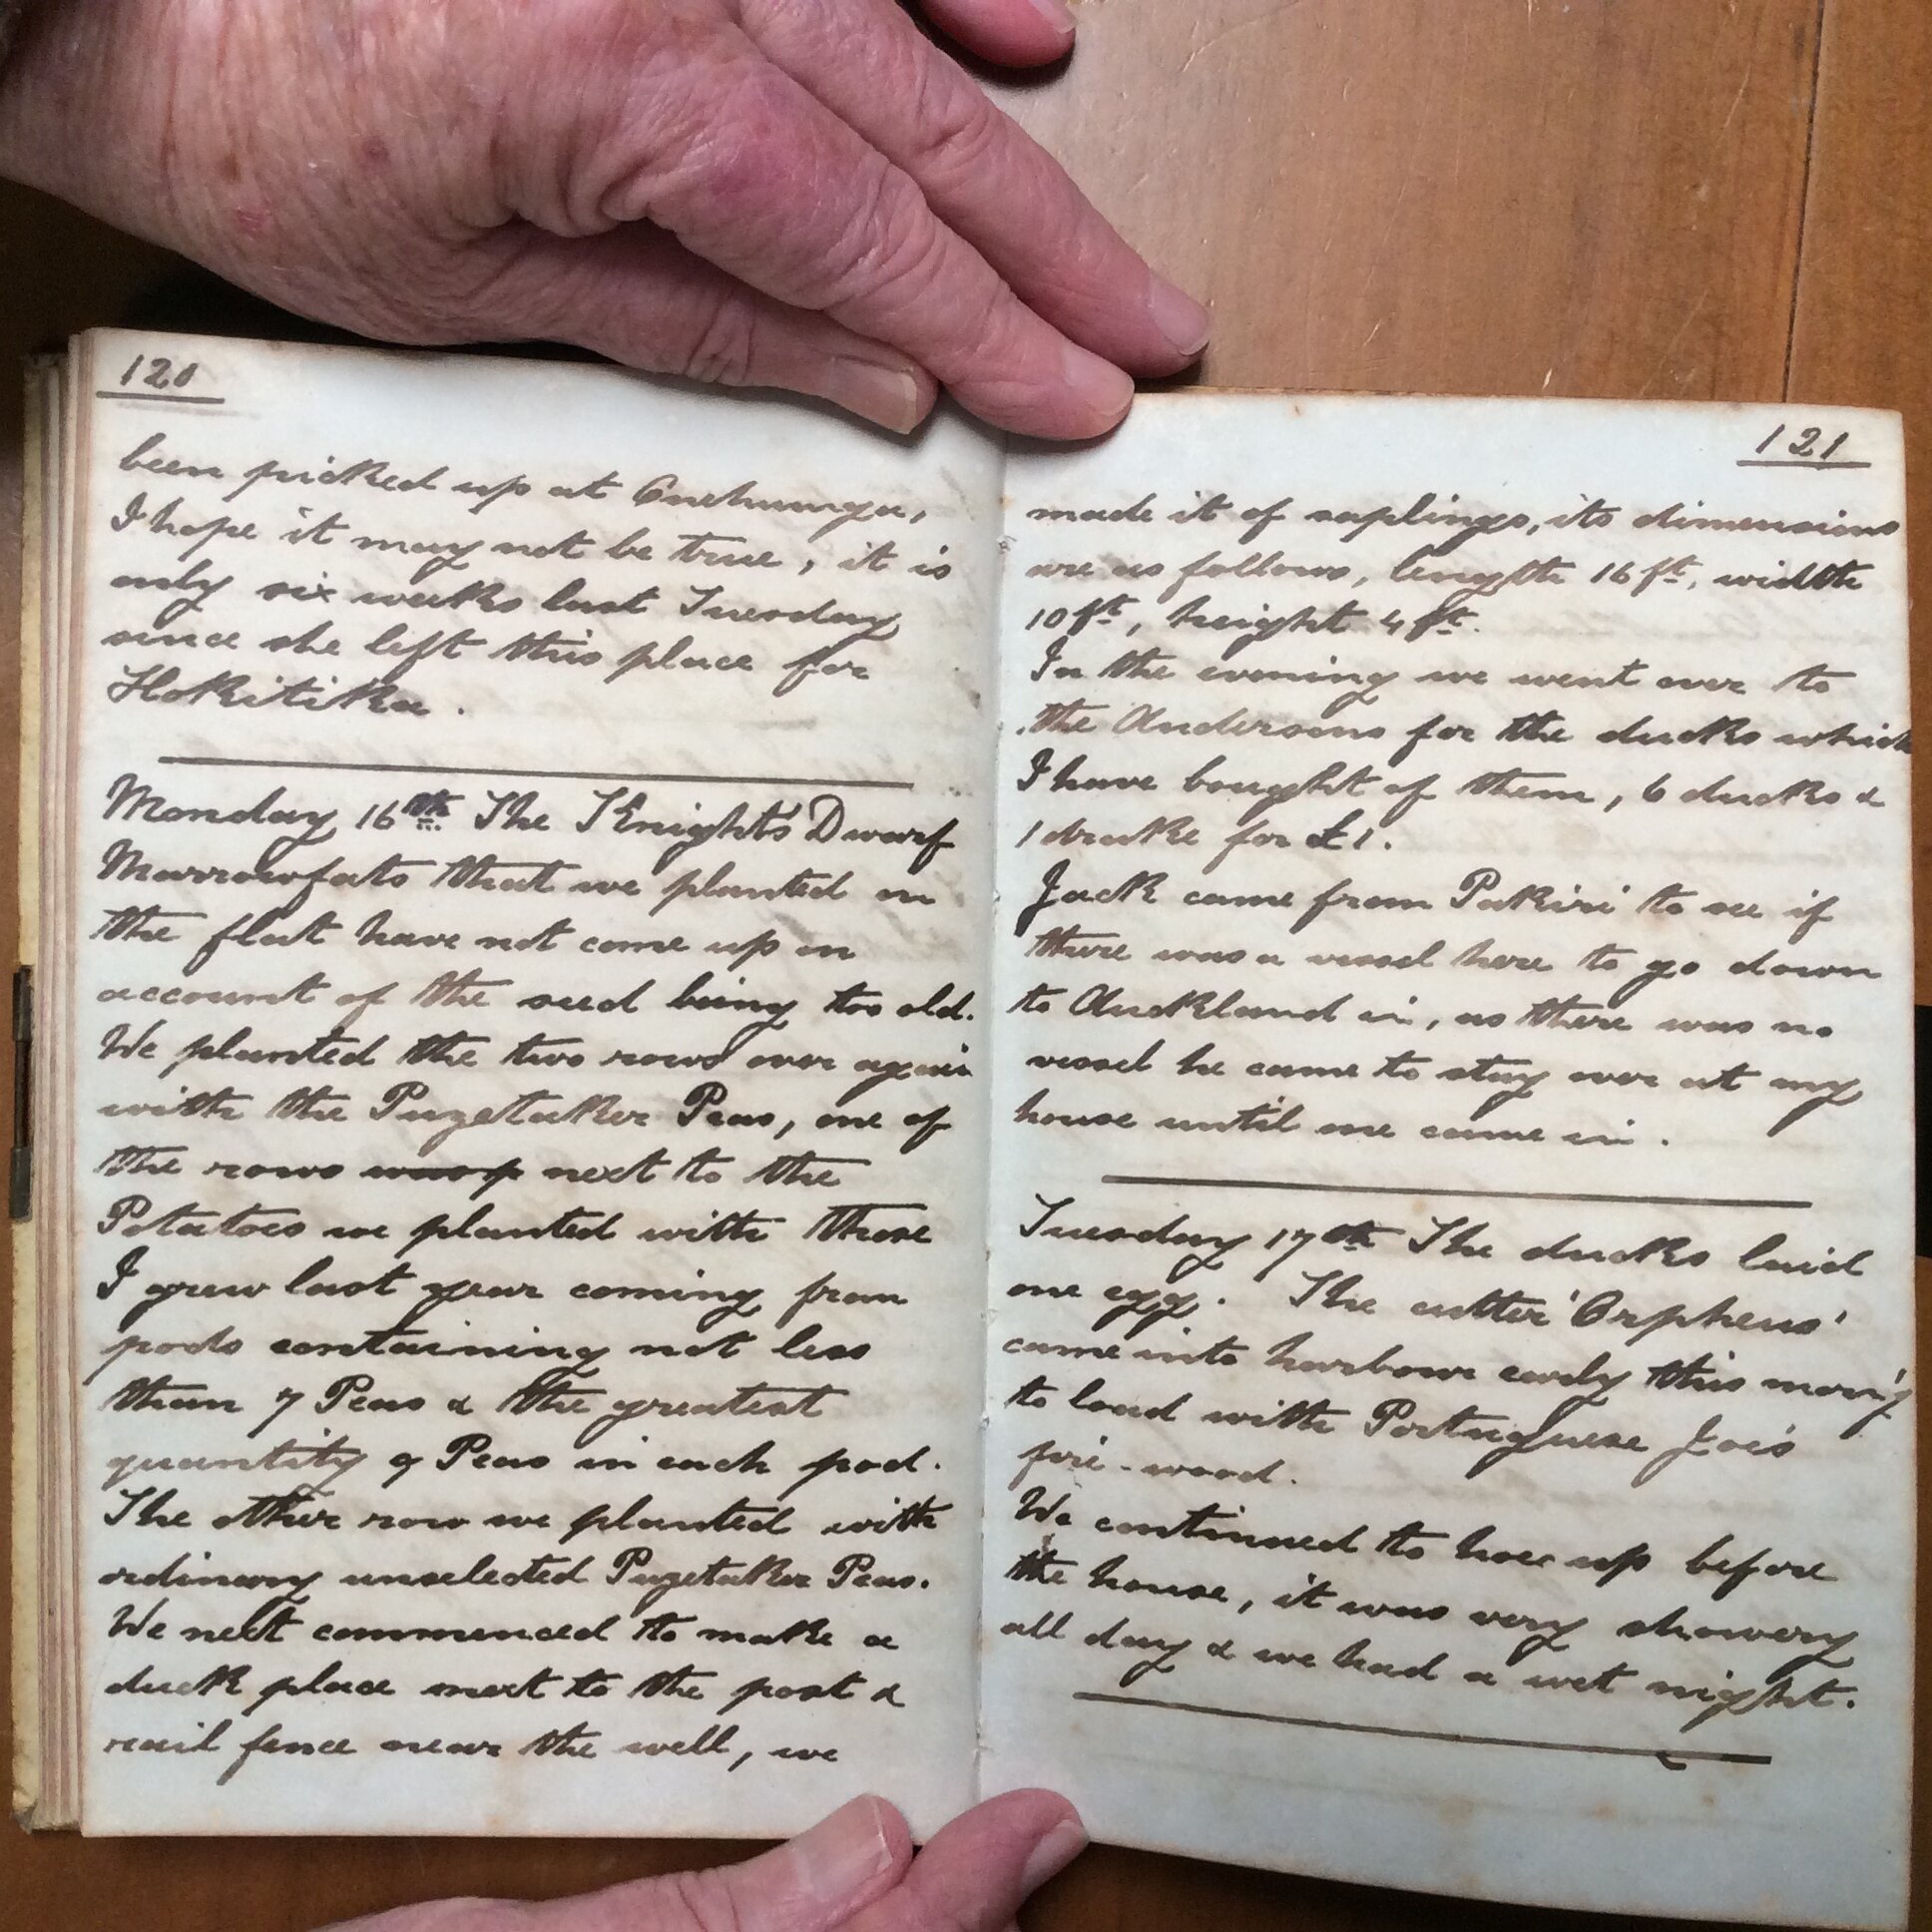 120
been picked up at Onehunga,
I hope it may not be true, it is
only six weeks last Tuesday
since she left this place for
Hokitika.
Monday 16th The Knight's Dwarf
Marrowfats that we planted on
the flat have not come up on
account of the seed being too old.
We planted the two rows over again
with the Prizetaker Peas, one of
the rows next to the
Potatoes we planted with those
I grew last year coming from
pods containing not less
than 7 Peas & the greatest
quantity of Peas in each pod.
The other row we planted with
ordinary unselected Prizetaker Peas.
We next commenced to make a
duck place next to the post &
rail fence near the well, we
121
made it of saplings, its dimensions
are as follows, length 16 ft, width
10 ft, height 4 ft.
In the evening we went over to
the Andersons for the ducks which
I have bought of them, 6 ducks &
1 drake for £1.
Jack came from Pakiri to see if
there was a vessel here to go down
to Auckland in, as there was no
vessel he came to stay over at my
house until one came in.
Tuesday 17th The ducks laid
one egg. The cutter 'Orpheus'
came into harbour early this morn'g
to load with Portuguese Joe's
fire-wood.
We continued to hoe up before
the house, it was very showery
all day & we had a wet night.